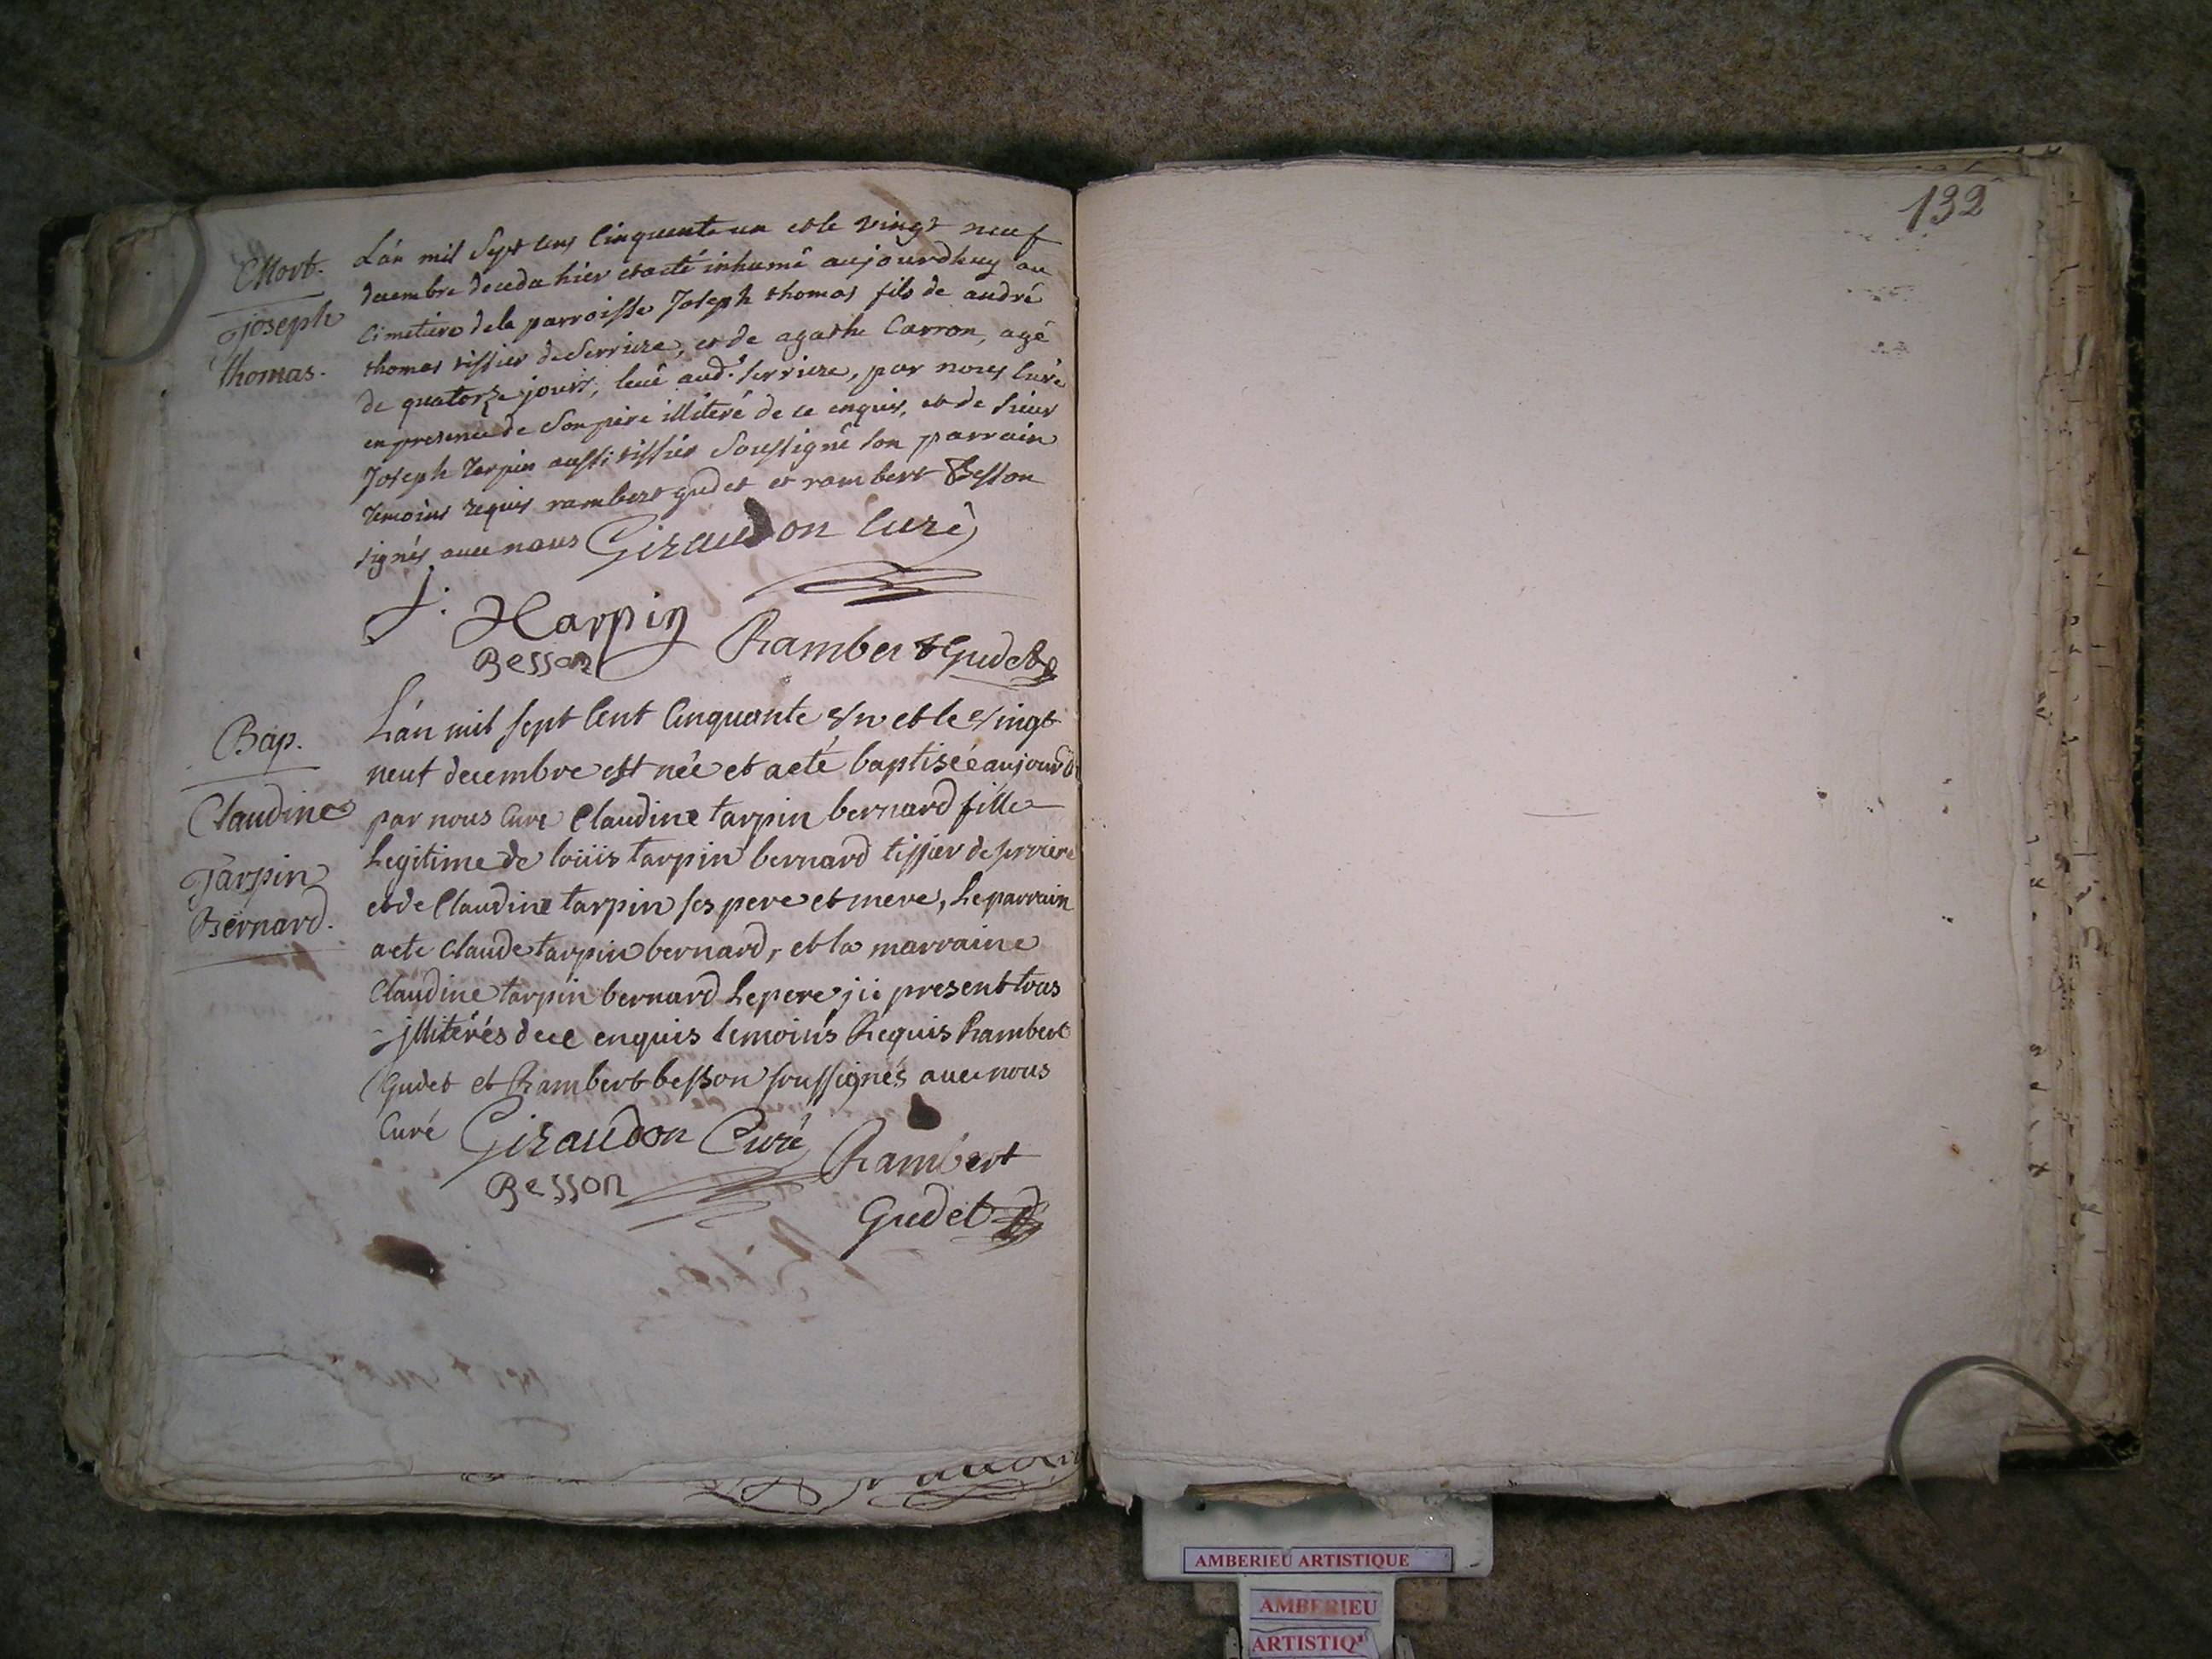 Mort.
Joseph
thomas.
L'án mil Sept cens Cinquante un et le vingt neuf
decembre deceda hier et acté inhumé aujourdhuy au
Cimetiere dela parroisse Joseph thomas fils de andré
thomas tissier de Serriere, et de agathe Carron, agé
de quatorze jours, levé aud. Serriere, par nous Curé
en presence de Son pere illiteré de ce enquis, et de sieur
Joseph Tarpin aussi tissier Soussigné son parrain
temoins requis rambert gudet et rambert Besson
signés avec nous Giraudon Curé
J. Tarpin
Besson Rambert Gudet
Bap.
Claudine
Tarpin
Bernard.
L'án mil sept Cent Cinquante Vn et le Vingt
neuf decembre est née et aeté baptisée aujourd
par nous Curé Claudine tarpin bernard fille
Legitime de loüis tarpin bernard tissier de serriere
et de Claudine tarpin ses pere et mere, Le parrain
aete Claude tarpin bernard, et la marraine
Claudine tarpin bernard Le pere ici present tous
illiterés de ce enquis temoins Requis Rambert
Gudet et Rambert besson soussignés avec nous
Curé Giraudon Curé Rambert
Besson
Gudet
132
AMBERIEU ARTISTIQUE
AMBERIEU
ARTISTIQ